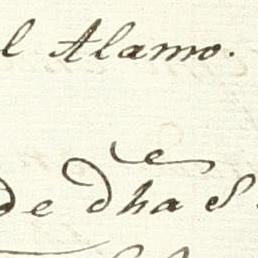 l Alamo.
de dha S.